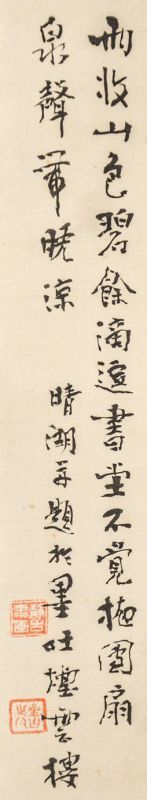 雨收山色碧餘滴逗書堂不覺抛團扇
泉聲帶曉涼　晴湖并題於墨吐煙雲樓